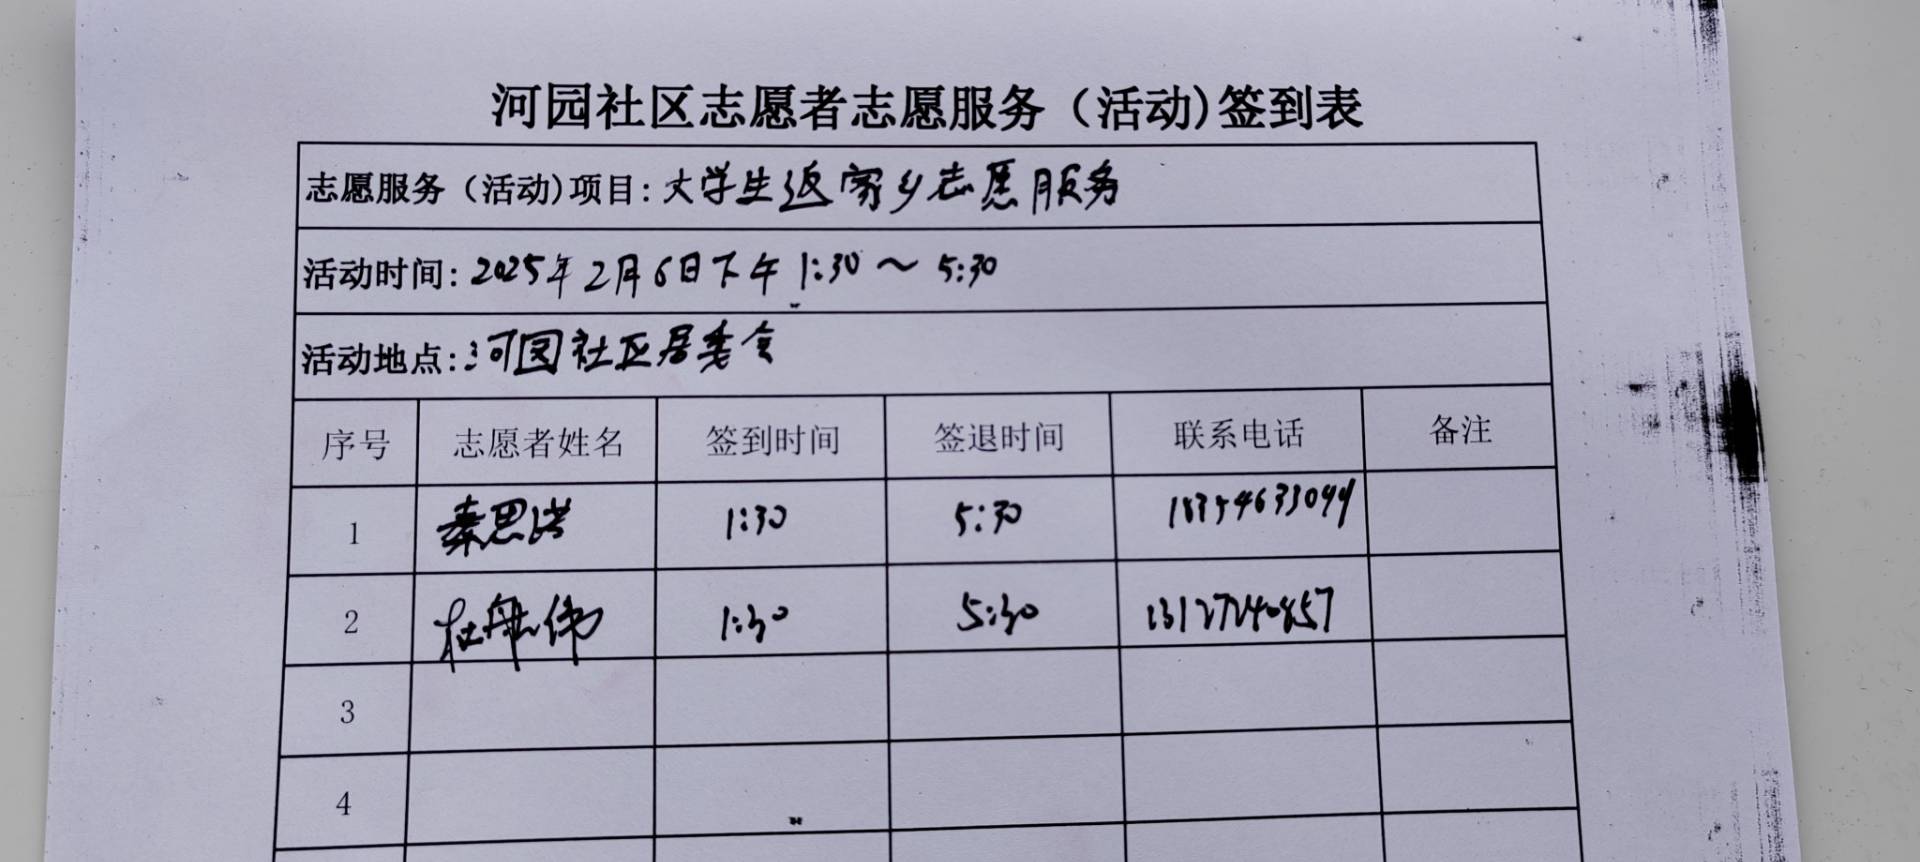 河园社区志愿者志愿服务（活动)签到表
志愿服务（活动)项目: 大学生返家乡志愿服务
活动时间: 2025年2月6日下午 1:30～5:30
活动地点: 河园社区居委会
序号 志愿者姓名 签到时间 签退时间 联系电话 备注
1 秦思 1:30 5:30 18354633044
2 杜 伟 1:30 5:30 13127240857
3
4